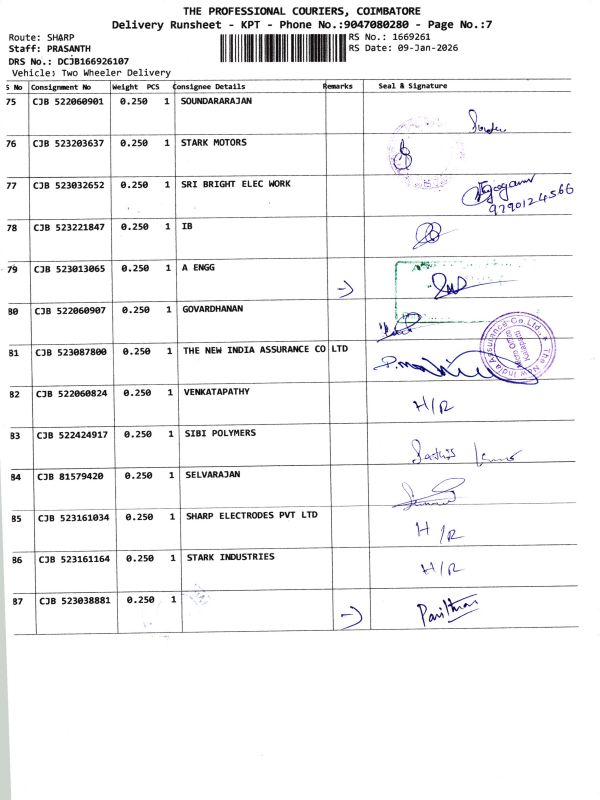 THE PROFESSIONAL COURIERS, COIMBATORE
Delivery Runsheet - KPT - Phone No.:9047080280 - Page No.:7
Route: SHARP
RS No.: 1669261
Staff: PRASANTH
RS Date: 09-Jan-2026
DRS No.: DCJB166926107
Vehicle: Two Wheeler Delivery
S No Consignment No Weight PCS Consignee Details Remarks Seal & Signature
75 CJB 522060901 0.250 1 SOUNDARARAJAN
76 CJB 523203637 0.250 1 STARK MOTORS
77 CJB 523032652 0.250 1 SRI BRIGHT ELEC WORK
9790124566
78 CJB 523221847 0.250 1 IB
79 CJB 523013065 0.250 1 A ENGG
80 CJB 522060907 0.250 1 GOVARDHANAN
81 CJB 523087800 0.250 1 THE NEW INDIA ASSURANCE CO LTD
The New India Assurance Co. Ltd.
82 CJB 522060824 0.250 1 VENKATAPATHY H/R
83 CJB 522424917 0.250 1 SIBI POLYMERS
84 CJB 81579420 0.250 1 SELVARAJAN
85 CJB 523161034 0.250 1 SHARP ELECTRODES PVT LTD H/R
86 CJB 523161164 0.250 1 STARK INDUSTRIES H/R
87 CJB 523038881 0.250 1